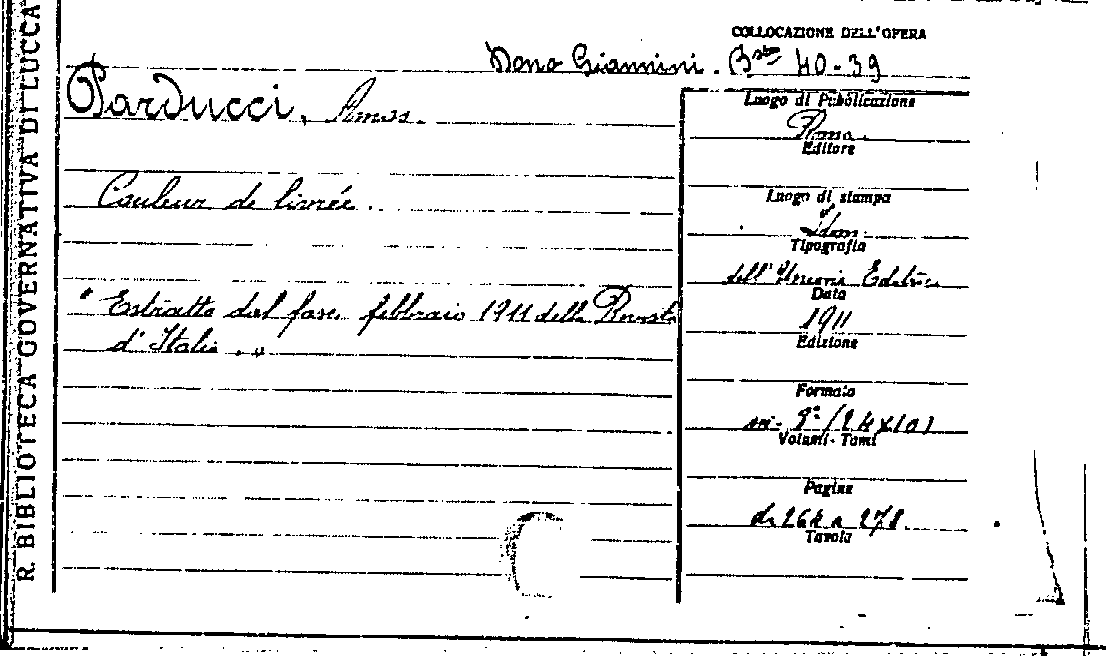 R. BIBLIOTECA GOVERNATIVA DI LUCCA
COLLOCAZIONE DELL'OPERA
Dono Giannini. Bsta 40-39
Parducci, Amos.
Luogo di Pubblicazione
Roma.
Editore
Couleur de livrée.
Luogo di stampa
Idem
Tipografia
dell'Unione Editrice
Data
"Estratto dal fasc. febbraio 1911 della Rivista
d'Italia."
1911
Edizione
Formato
in- 8° (24x
Volumi - Tomi
Pagine
da 264 a 278
Tavola